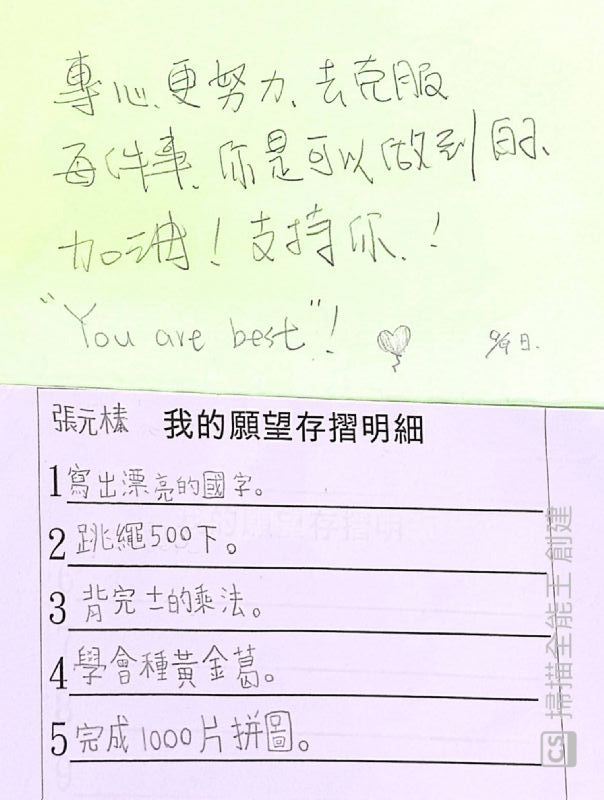 專心、更努力、去克服
每件事、你是可以做到的、
加油！支持你、！
"You are best"！
9/9日.
張元榛 我的願望存摺明細
1寫出漂亮的國字。
2跳繩500下。
3背完士的乘法。
4學會種黃金葛。
5完成1000片拼圖。
CS 掃描全能王 創建